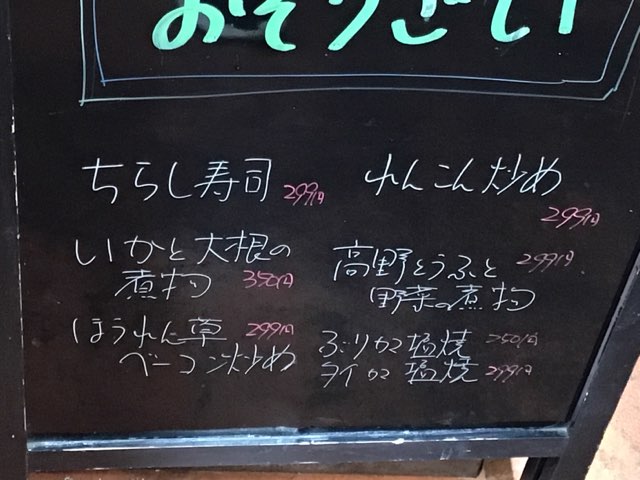 おそうざい
ちらし寿司 299円
いかと大根の
煮物 350円
ほうれん草 299円
ベーコン炒め
れんこん炒め
299円
高野とうふと 299円
野菜の煮物
ぶりカマ塩焼 250円
タイカマ塩焼 299円